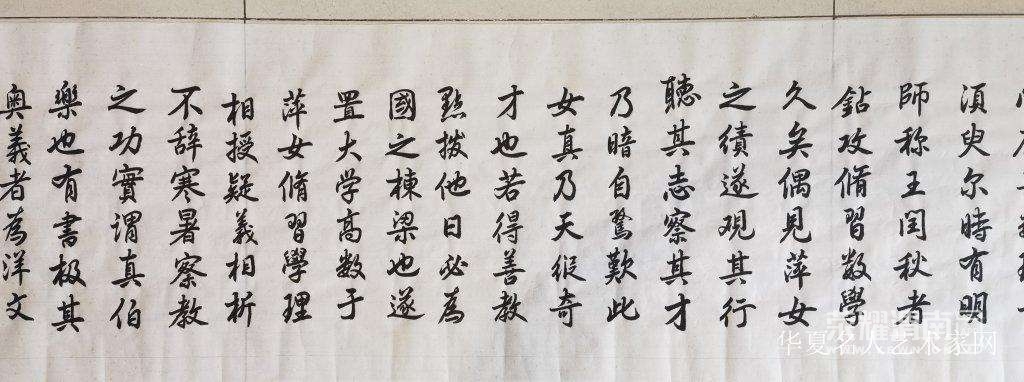 須臾尔時有明
師称王闰秋者
鉆攻脩習数學
久矣偶見萍女
之績遂观其行
聽其志察其才
乃暗自驚歎此
女真乃天縱奇
才也若得善教
點拨他日必為
國之棟梁也遂
置大学高数于
萍女脩習學理
相授疑義相析
不辞寒暑察教
之功實謂真伯
樂也有書极其
奥義者為洋文
荣耀渭南网
华夏名人艺术家网